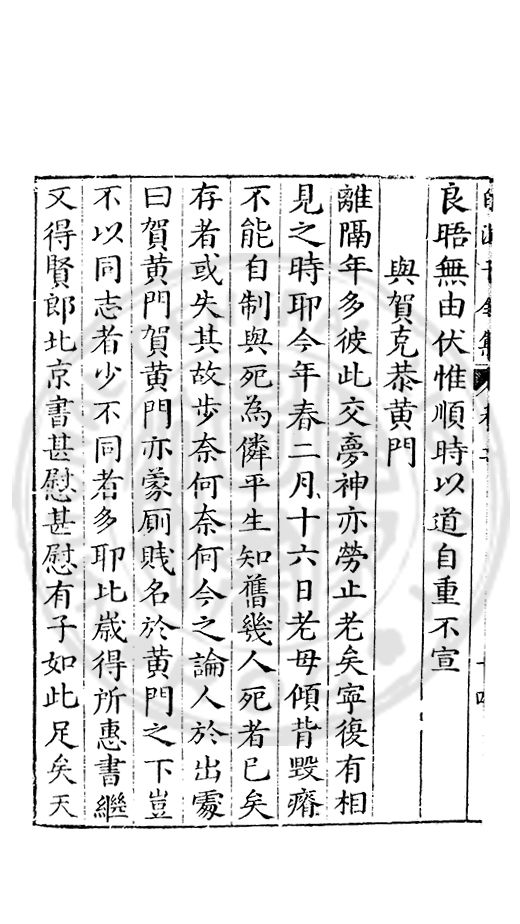 良晤無由伏惟順時以道自重不宣
與賀克恭黄門
離隔年多彼此交夣神亦勞止老矣寜復有相
見之時耶今年春二月十六日老母傾背毁瘠
不能自制與死為僯平生知舊幾人死者已矣
存者或失其故步奈何奈何今之論人於出處
曰賀黄門賀黄門亦蒙厠賤名於黄門之下豈
不以同志者少不同者多耶比歳得所惠書繼
又得賢郎北京書甚慰甚慰有子如此足矣天